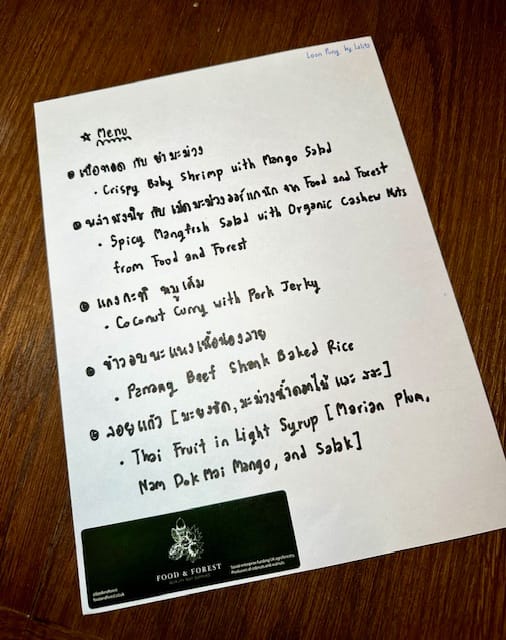 Loon Pung by Lalita
☆ Menu
เคยทอด กับ ยำมะม่วง
• Crispy Baby Shrimp with Mango Salad
กับ เม็ดมะม่วงออร์แกนิก จาก Food and Forest
• Spicy Mangfish Salad with Organic Cashew Nuts
from Food and Forest
แกงกะทิ หมูเค็ม
• Coconut Curry with Pork Jerky
ข้าวอบพะแนงเนื้อน่องลาย
• Panang Beef Shank Baked Rice
ลอยแก้ว [มะยงชิด, มะม่วงน้ำดอกไม้ และ ระกำ]
• Thai Fruit in Light Syrup [Marian Plum,
Nam Dok Mai Mango, and Salak]
FOOD & FOREST